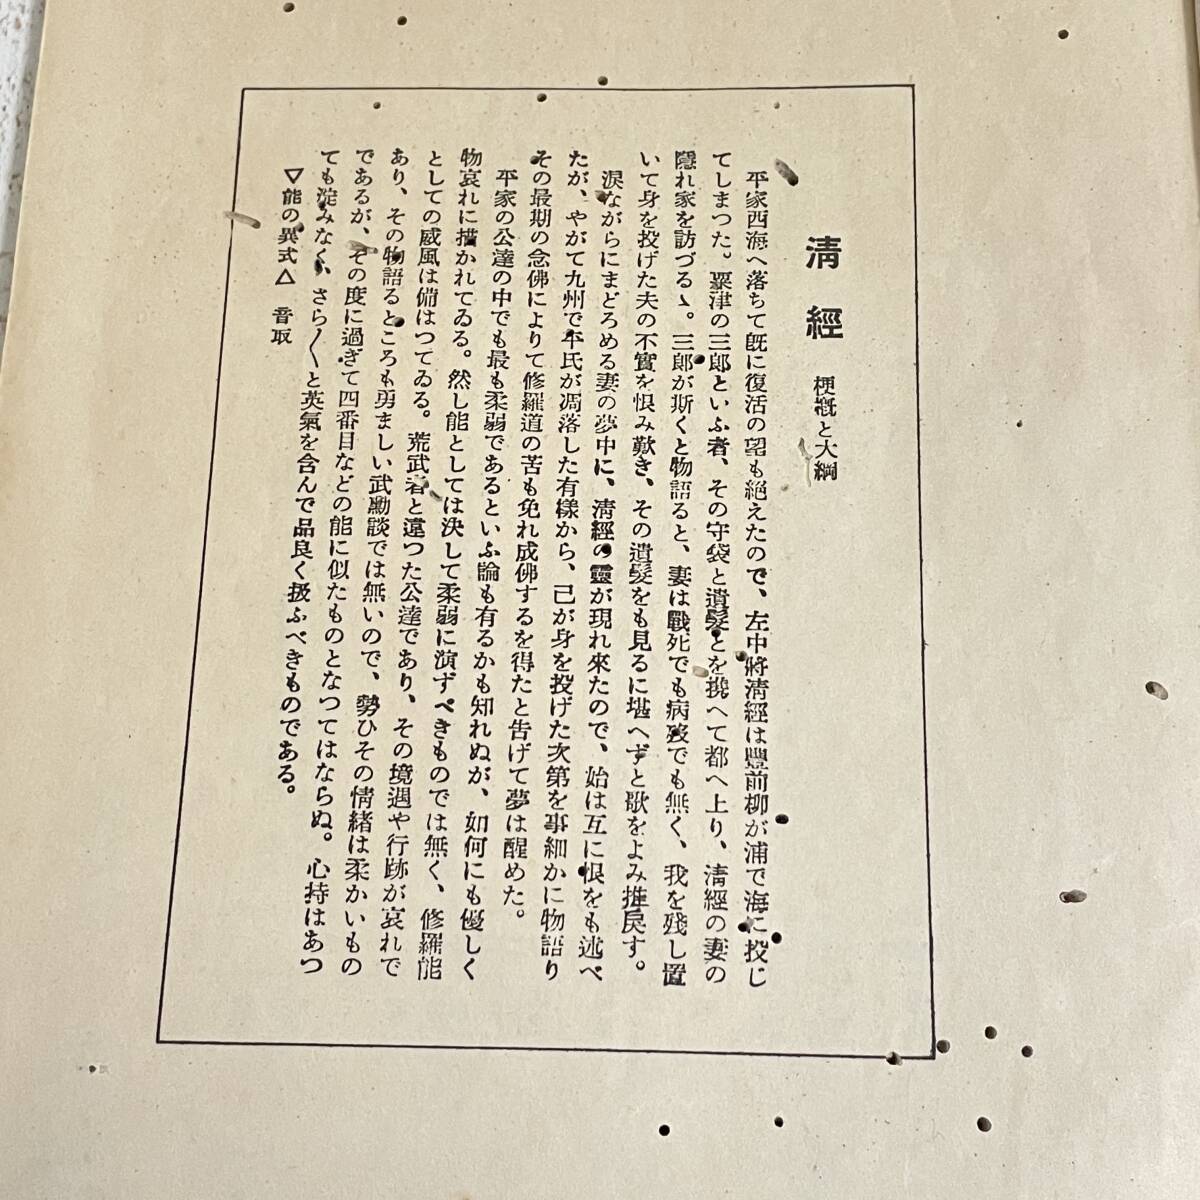 清經 梗概と大綱
平家西海へ落ちて既に復活の望も絶えたので、左中將清經は豐前柳が浦で海に投じ
てしまつた。粟津の三郎といふ者、その守袋と遺髮とを携へて都へ上り、清經の妻の
隱れ家を訪づるゝ。三郎が斯くと物語ると、妻は戰死でも病歿でも無く、我を殘し置
いて身を投げた夫の不實を恨み歎き、その遺髮をも見るに堪へずと歌をよみ推戻す。
涙ながらにまどろめる妻の夢中に、清經の靈が現れ來たので、始は互に恨をも述べ
たが、やがて九州で平氏が凋落した有樣から、己が身を投げた次第を事細かに物語り
その最期の念佛によりて修羅道の苦も免れ成佛するを得たと告げて夢は醒めた。
平家の公達の中でも最も柔弱であるといふ論も有るかも知れぬが、如何にも優しく
物哀れに描かれてゐる。然し能としては決して柔弱に演ずべきものでは無く、修羅能
としての威風は備はつてゐる。荒武者と違つた公達であり、その境遇や行跡が哀れで
あり、その物語るところも勇ましい武勳談では無いので、勢ひその情緒は柔かいもの
であるが、その度に過ぎて四番目などの能に似たものとなつてはならぬ。心持はあつ
ても淀みなく、さら〱と英氣を含んで品良く扱ふべきものである。
▽能の異式△ 音取